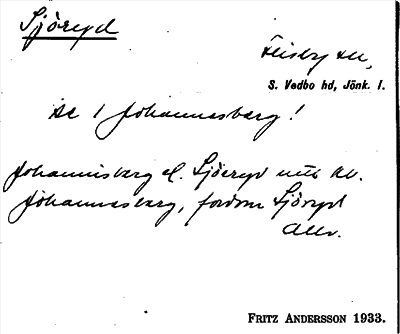 Sjöryd
Flisby sn,
S. Vedbo hd, Jönk. l.
se 1 Johannesberg!
Johannisberg el. Sjöeryd mtl kv.
Johannesberg, fordom Sjöryd
FRITZ ANDERSSON 1933.